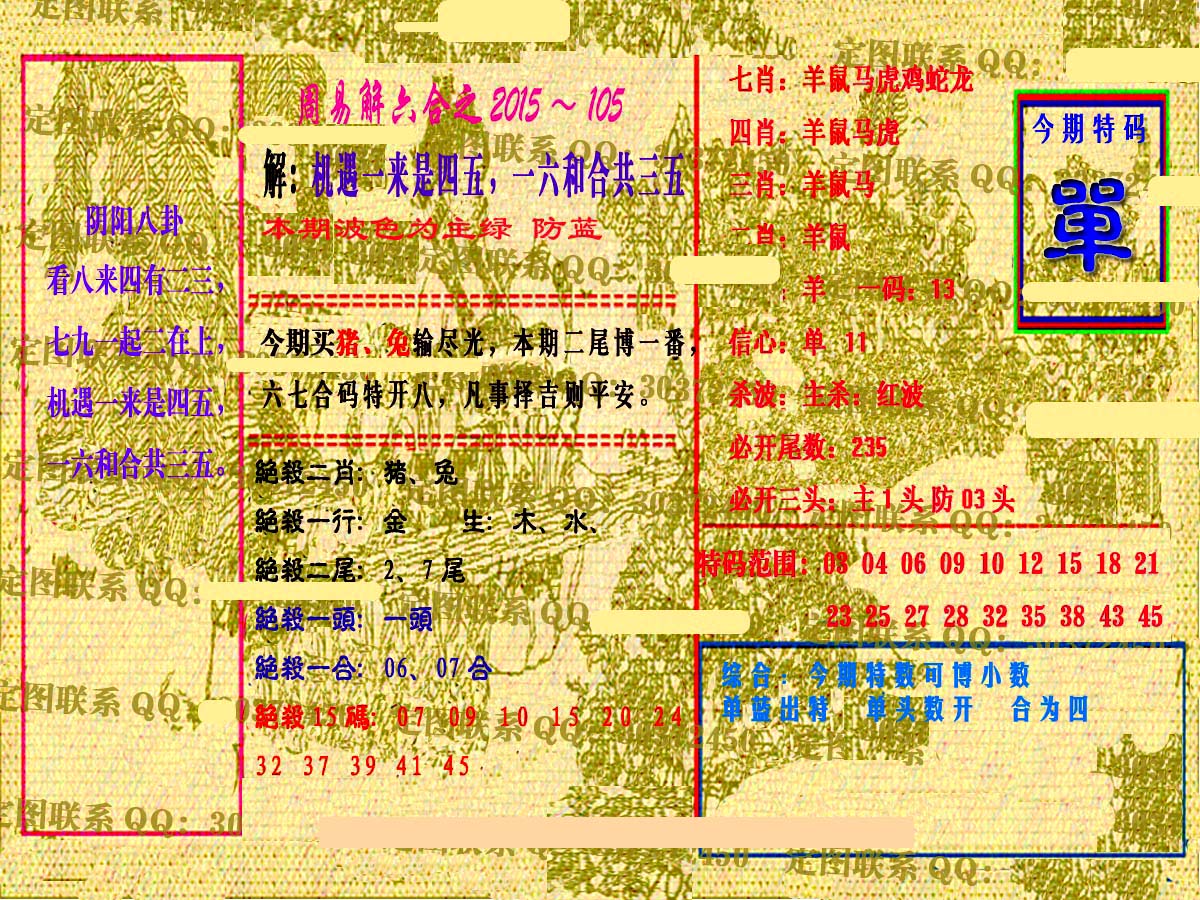 阴阳八卦
看八来四有二三，
七九一起二在上，
机遇一来是四五，
一六和合共三五。
周易解六合之 2015～105
解：机遇一来是四五，一六和合共三五
本期波色为主绿 防蓝
今期买猪、兔输尽光，本期二尾博一番，
六七合码特开八，凡事择吉则平安。
絕殺二肖：猪、兔
絕殺一行：金 生：木、水、
絕殺二尾：2、7 尾
絕殺一頭：一頭
絕殺一合：06、07 合
絕殺 15 碼：07 09 10 15 20 24
32 37 39 41 45
七肖：羊鼠马虎鸡蛇龙
四肖：羊鼠马虎
三肖：羊鼠马
二肖：羊鼠
羊 一码：13
信心：单 11
杀波：主杀：红波
必开尾数：235
必开三头：主 1 头 防 03 头
今期特码
單
特码范围：03 04 06 09 10 12 15 18 21
23 25 27 28 32 35 38 43 45
综合：今期特数可博小数
单蓝出特 单头数开 合为四
定图联系 QQ：